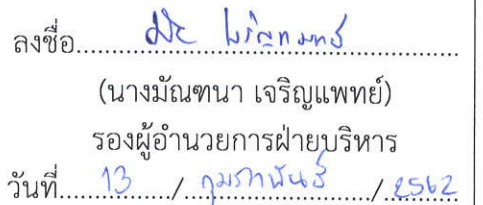 ลงชื่อ........................................
(นางมัณฑนา เจริญแพทย์)
รองผู้อำนวยการฝ่ายบริหาร
วันที่.....13....../...กุมภาพันธ์.../..2562